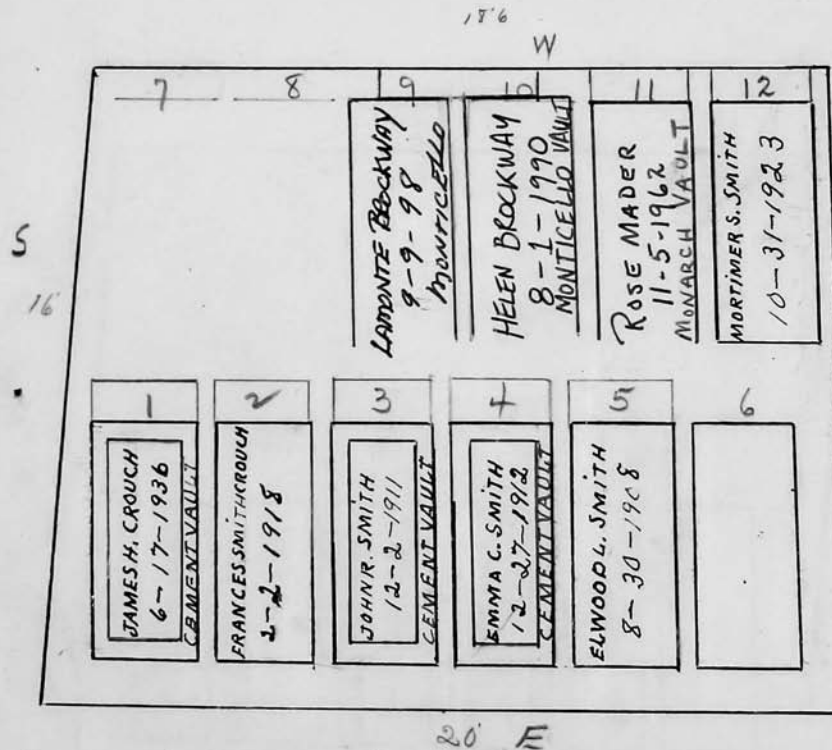 18'6
W
7
8
9
10
11
12
LAMONTE BROCKWAY
9-9-98
MONTICELLO
HELEN BROCKWAY
8-1-1990
MONTICELLO VAULT
ROSE MADER
11-5-1962
MONARCH VAULT
MORTIMER S. SMITH
10-31-1923
S
16
1
2
3
4
5
6
JAMES H. CROUCH
6-17-1936
CEMENT VAULT
FRANCES SMITH CROUCH
2-2-1918
JOHN R. SMITH
12-2-1911
CEMENT VAULT
EMMA C. SMITH
12-27-1912
CEMENT VAULT
ELWOOD L. SMITH
8-30-1908
20' E